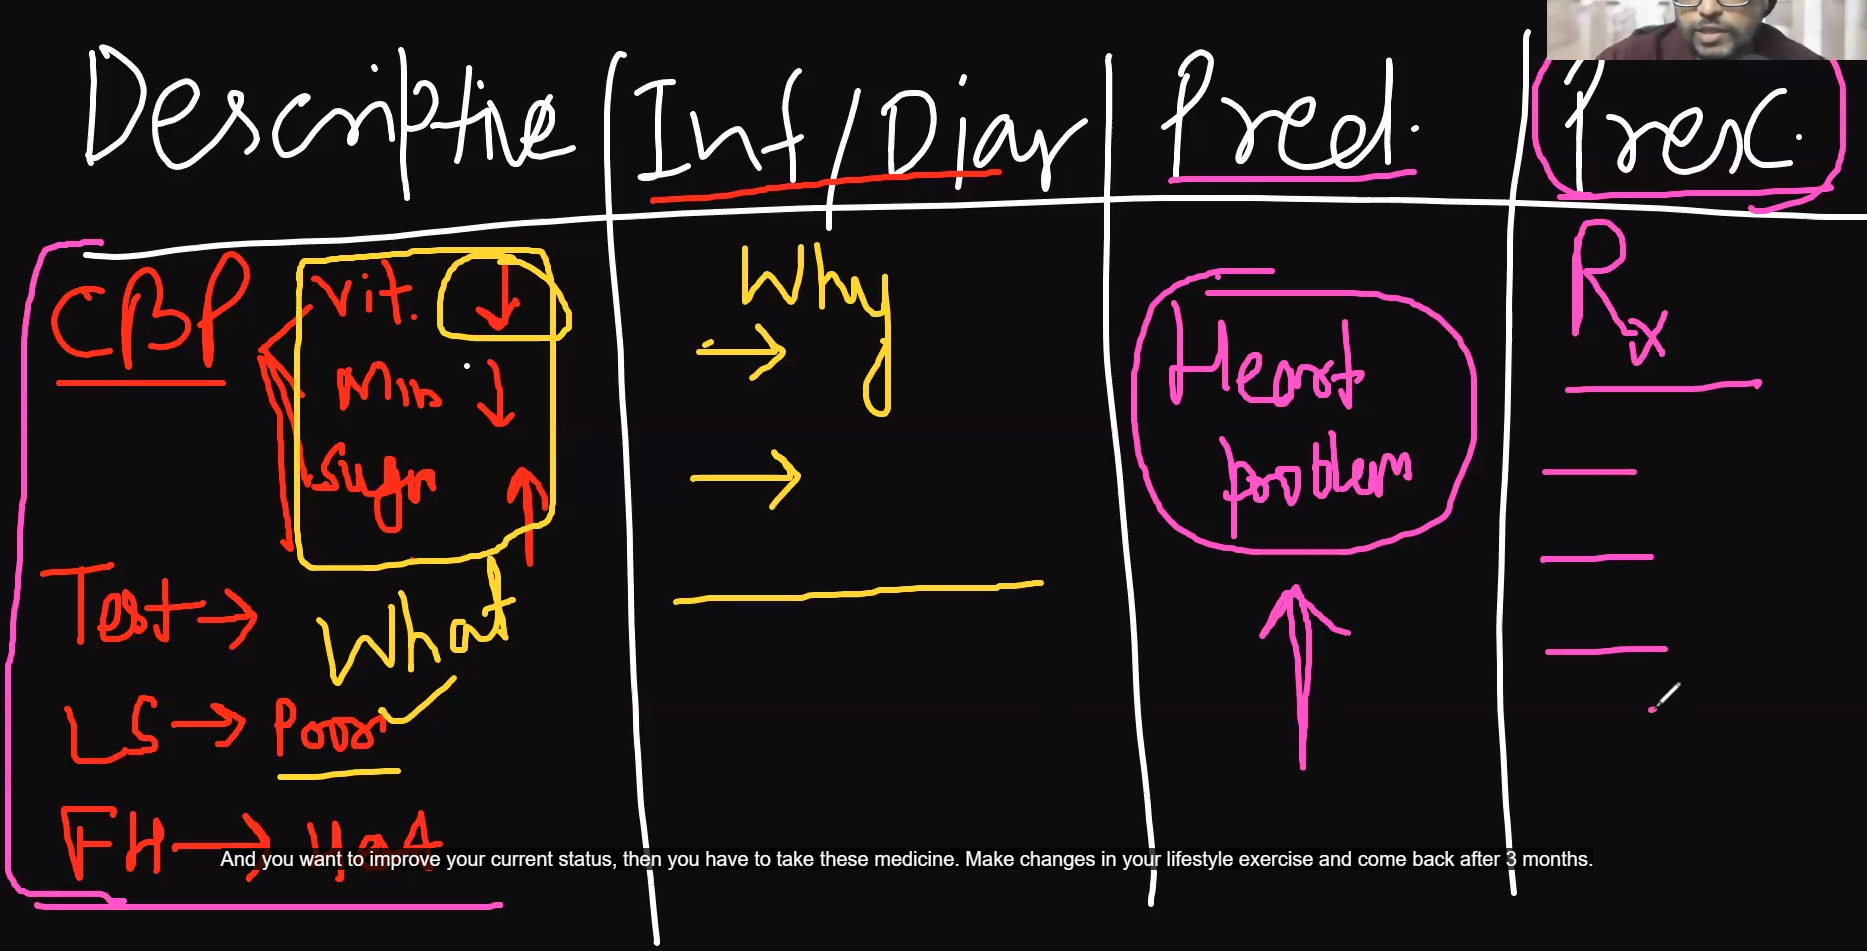 Descriptive Inf/Diag Pred. Presc.
CBP Vit. ↓ Why Rx
Min ↓ Heart
Sugr ↑ problem
Test →
What
LS → Poor
FH →
And you want to improve your current status, then you have to take these medicine. Make changes in your lifestyle exercise and come back after 3 months.